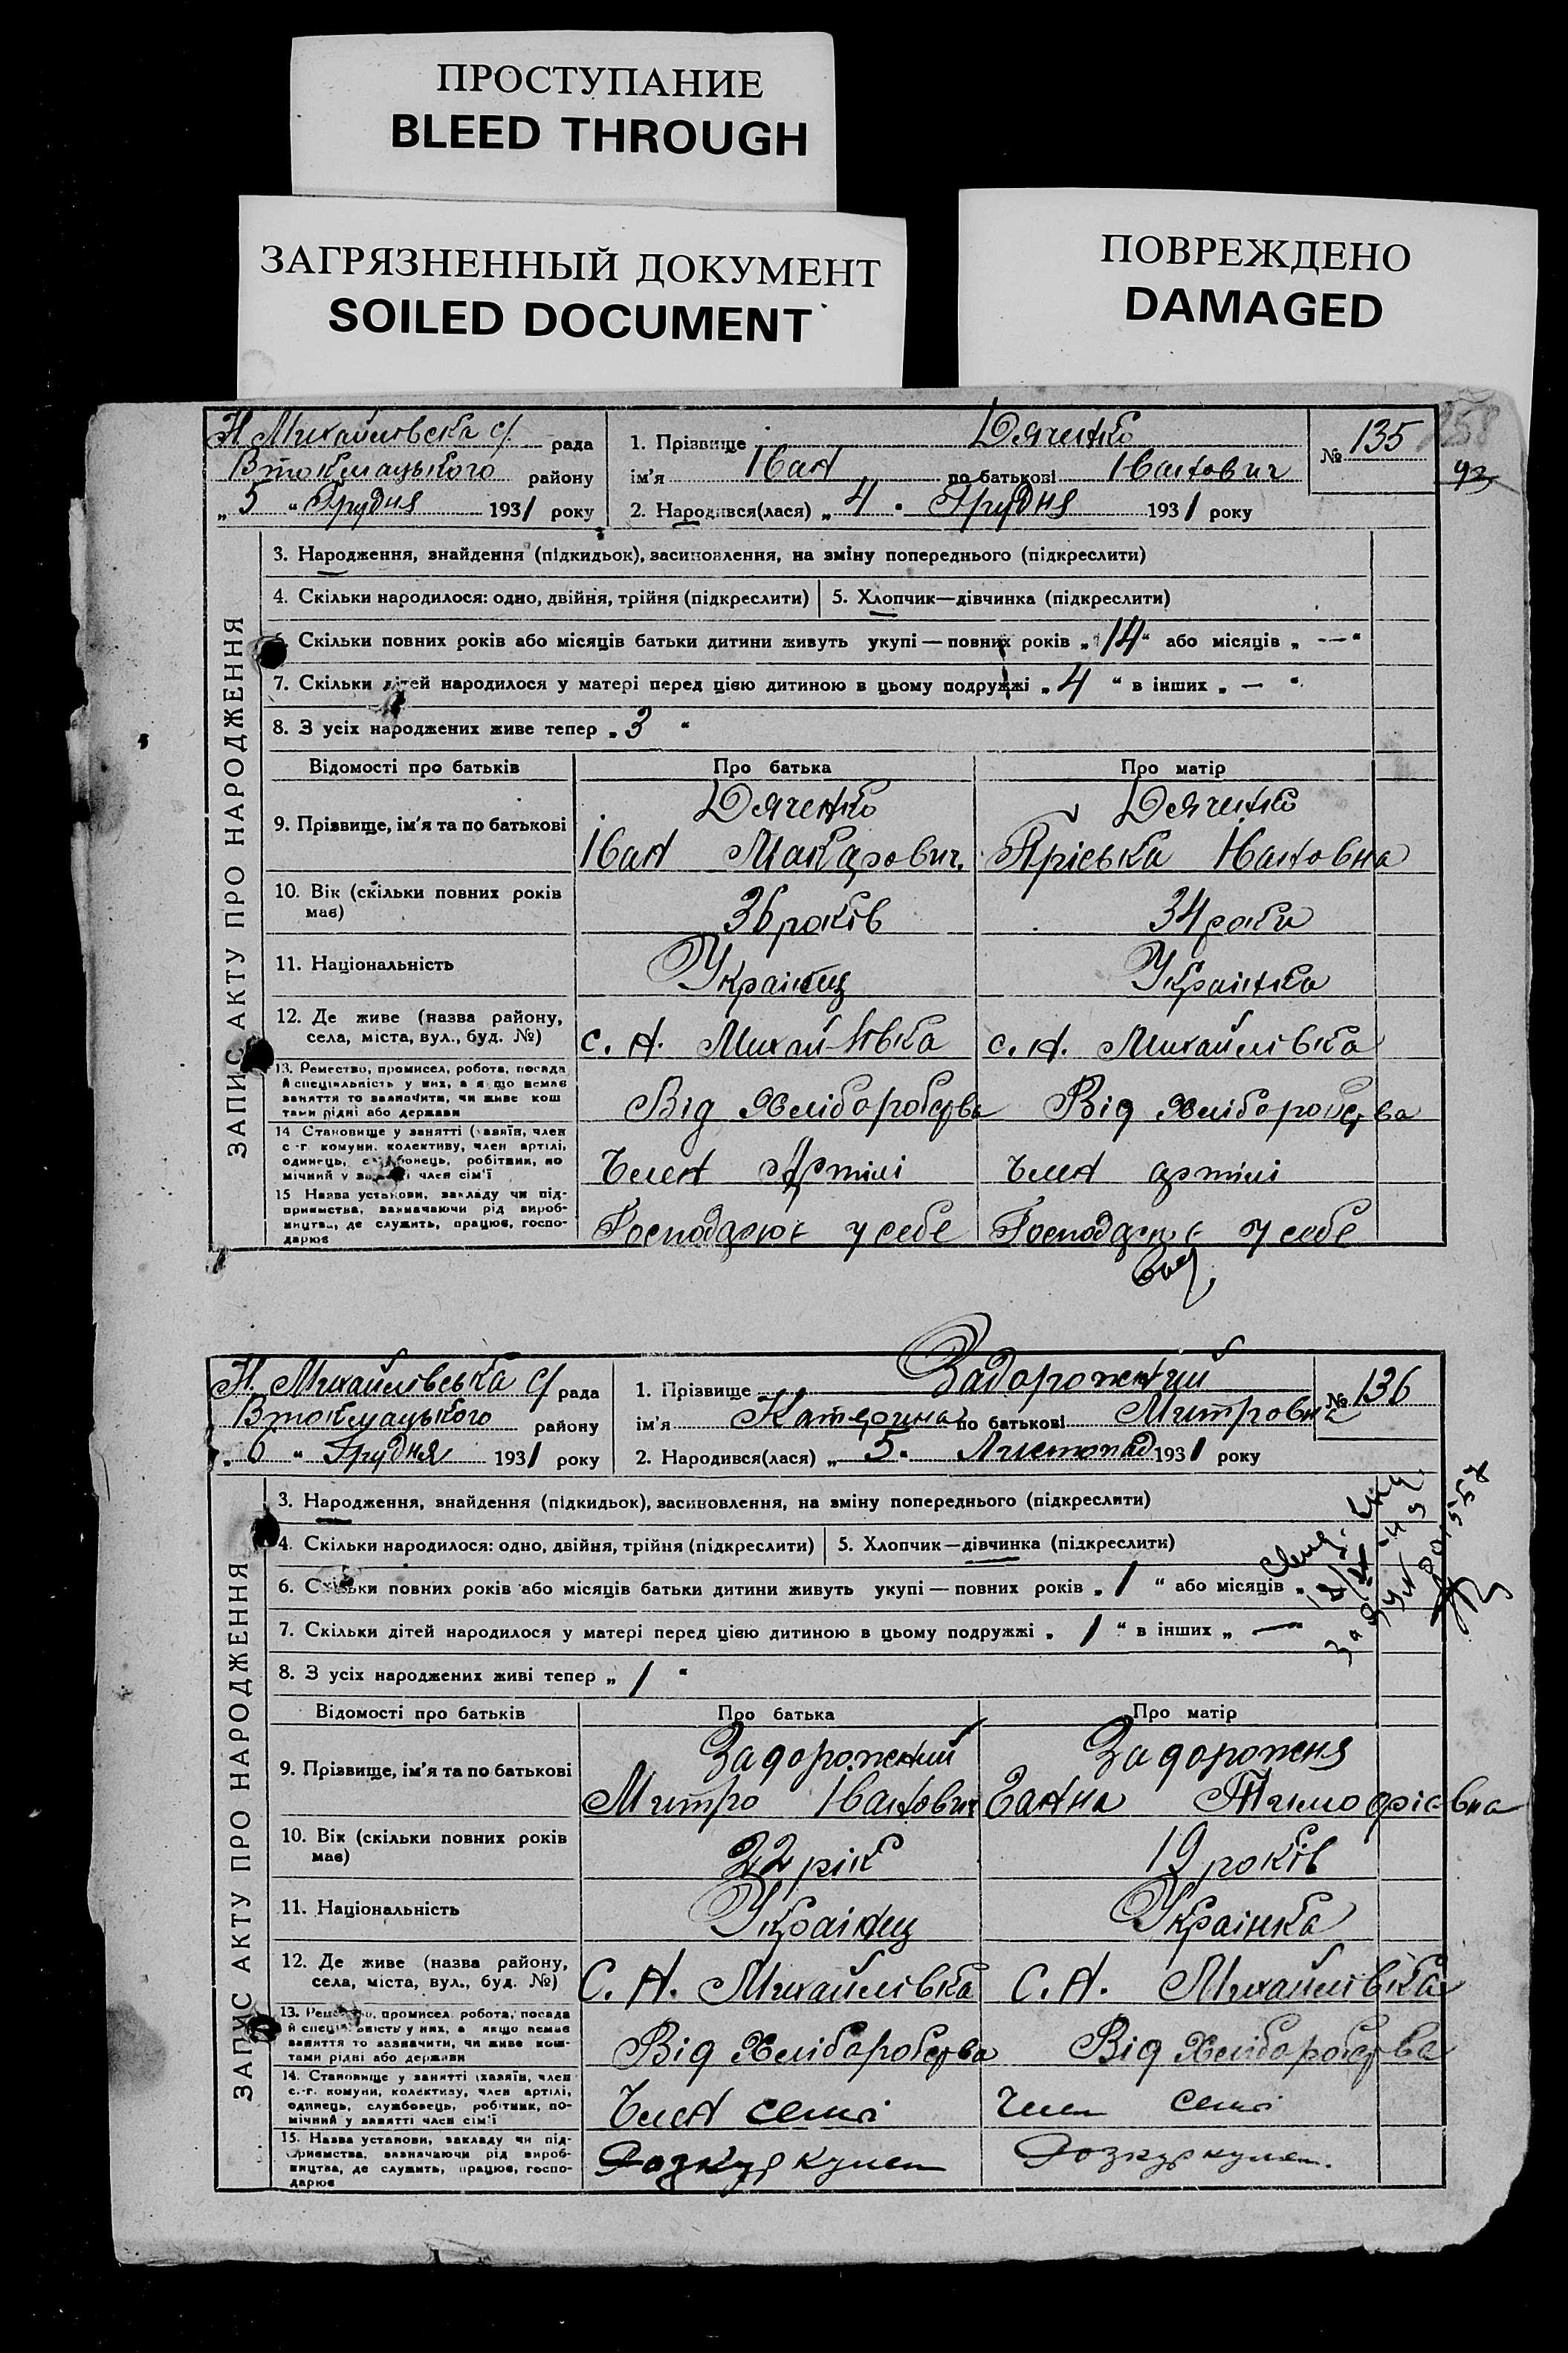 ПРОСТУПАНИЕ
BLEED THROUGH
ЗАГРЯЗНЕННЫЙ ДОКУМЕНТ
SOILED DOCUMENT
ПОВРЕЖДЕНО
DAMAGED
258
93
ЗАПИС АКТУ ПРО НАРОДЖЕННЯ
Н Михайлівська с/. рада
Втокмацького району
„ 5 “ Грудня 1931 року
1. Прізвище Дяченко
ім'я Іван по батькові Іванович
№ 135
2. Народився(лася) „ 4 “ Грудня 1931 року
3. Народження, знайдення (підкидьок), засиновлення, на зміну попереднього (підкреслити)
4. Скільки народилося: одно, двійня, трійня (підкреслити) 5. Хлопчик—дівчинка (підкреслити)
6. Скільки повних років або місяців батьки дитини живуть укупі — повних років „ 14 “ або місяців „ — “
7. Скільки дітей народилося у матері перед цією дитиною в цьому подружжі „ 4 “ в інших „ — “
8. З усіх народжених живе тепер „ 3 “
Відомості про батьків Про батька Про матір
9. Прізвище, ім'я та по батькові Дяченко Іван Макарович. Дяченко Пріська Івановна
10. Вік (скільки повних років має) 36 років 34 роки
11. Національність Українец Українка
12. Де живе (назва району, села, міста, вул., буд. №) с. Н. Михайлівка с. Н. Михайлівка
13. Ремество, промисел, робота, посада й спеціяльність у них, а якщо немає заняття то зазначити, чи живе коштами рідні або держави Від Хліборобства Від Хліборобства
14 Становище у занятті (хазяїн, член с.-г. комуни, колективу, член артілі, одинець, службовець, робітник, помічний у занятті член сім'ї Член Артілі Член артілі
15 Назва установи, закладу чи підприємства, зазначаючи рід виробництва, де служить, працює, господарює Господарює у себе Господарює у себе
ЗАПИС АКТУ ПРО НАРОДЖЕННЯ
Н. Михайлівська с/ рада
Втокмацького району
„ 6 “ Грудня 1931 року
1. Прізвище Задорожний
ім'я Катерина по батькові Митровн
№ 136
2. Народився(лася) „ 5 “ Листопад 1931 року
3. Народження, знайдення (підкидьок), засиновлення, на зміну попереднього (підкреслити)
4. Скільки народилося: одно, двійня, трійня (підкреслити) 5. Хлопчик—дівчинка (підкреслити)
6. Скільки повних років або місяців батьки дитини живуть укупі — повних років „ 1 “ або місяців „
7. Скільки дітей народилося у матері перед цією дитиною в цьому подружжі „ 1 “ в інших „ —
8. З усіх народжених живі тепер „ 1 “
Відомості про батьків Про батька Про матір
9. Прізвище, ім'я та по батькові Задорожний Митро Іванович Задорожня Ганна Тимофіївна
10. Вік (скільки повних років має) 22 рік 19 років
11. Національність Українец Українка
12. Де живе (назва району, села, міста, вул., буд. №) С. Н. Михайлівка С. Н. Михайлівка
13. Ремество, промисел робота, посада й спеціяльність у них, а якщо немає заняття то зазначити, чи живе коштами рідні або держави Від Хліборобства Від Хліборобства
14. Становище у занятті (хазяїн, член с.-г. комуни, колективу, член артілі, одинець, службовець, робітник, помічний у занятті член сім'ї Член семі Член семі
15. Назва установи, закладу чи підприємства, зазначаючи рід виробництва, де служить, працює, господарює